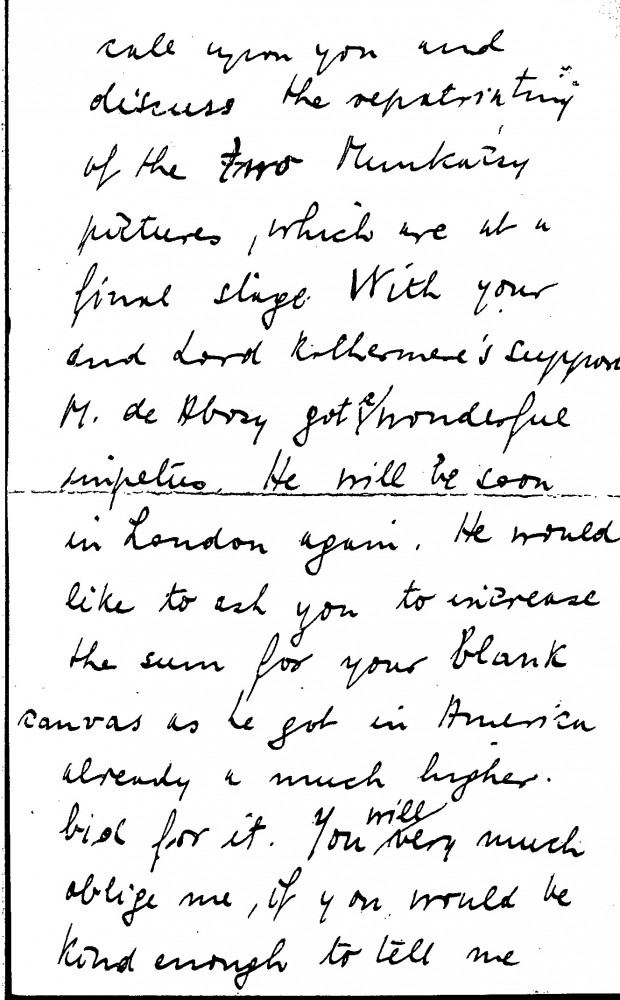 call upon you and
discuss the repatriating
of the two Munkácsy
pictures, which are at a
final stage. With your
and Lord Rothermere's support
M. de Abozy got a wonderful
impetus. He will be soon
in London again. He would
like to ask you to increase
the sum for your blank
canvas as he got in America
already a much higher.
bid for it. You will very much
oblige me, if you would be
kind enough to tell me